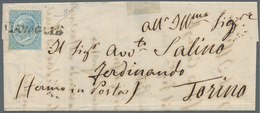 all' Ill.mo Sig.re
Il Sig.r Avv.to Salino
Ferdinando
(fermo in Posta) Torino